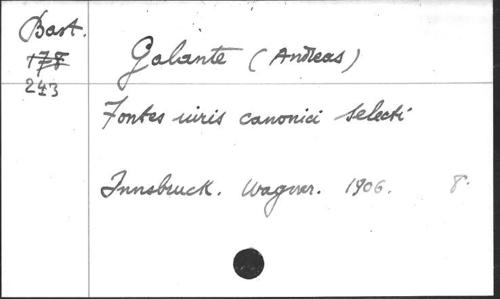 Bart.
178
243
Galante (Andreas)
Fontes iuris canonici selecti
Innsbruck. Wagner. 1906. 8.